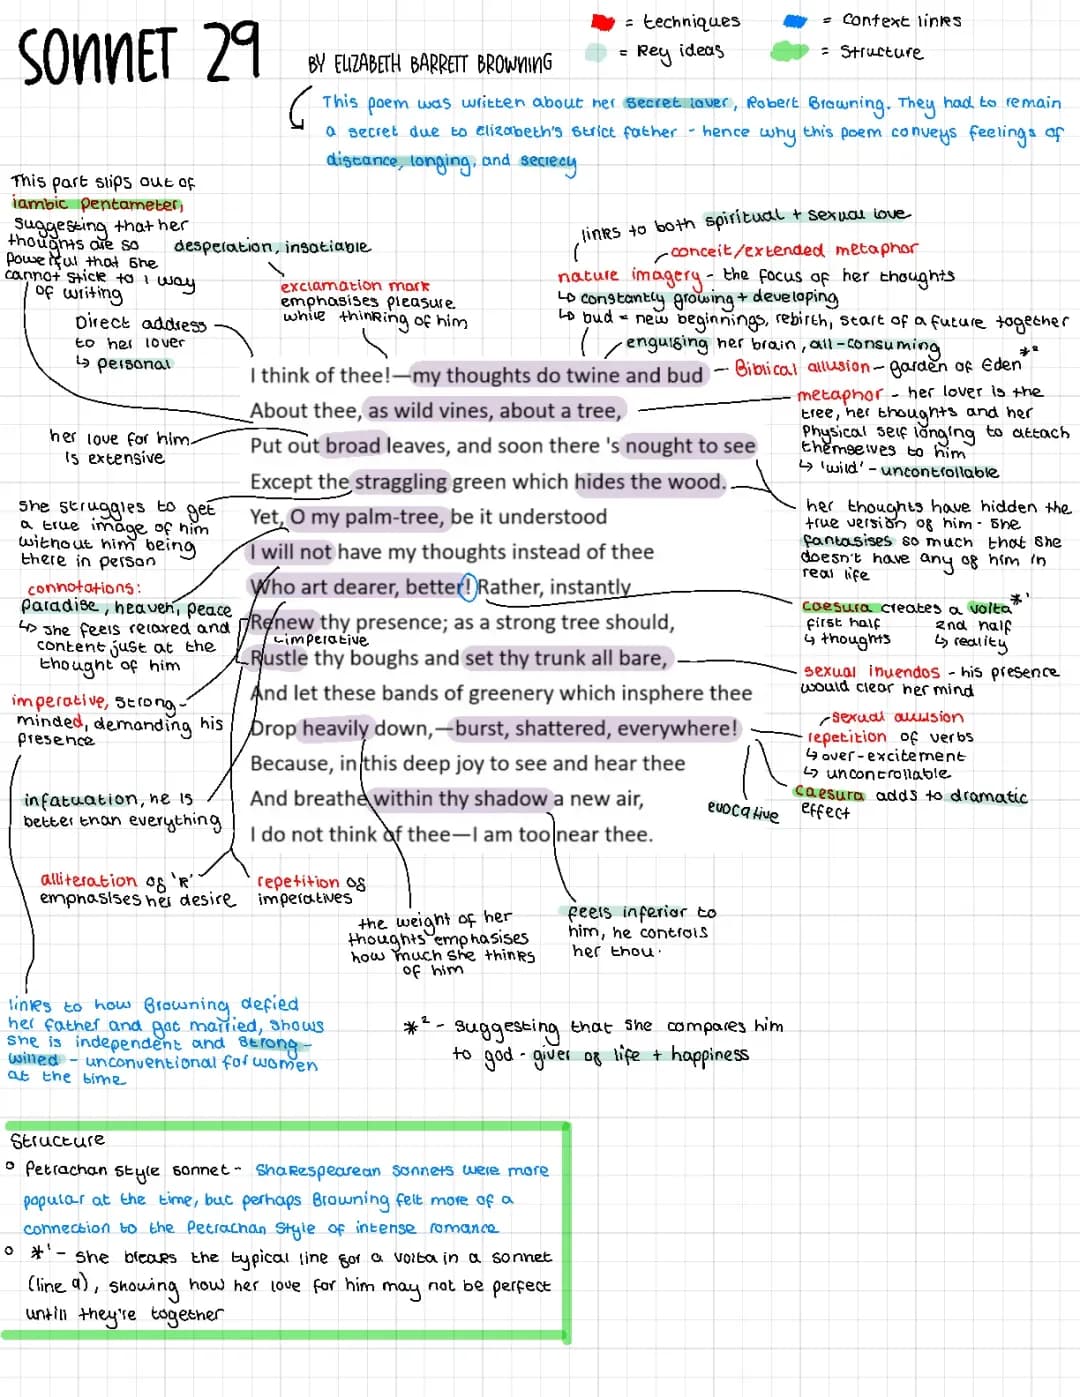 SONNET 29
BY ELIZABETH BARRETT BROWNING
= techniques
= Context links
= Key ideas
= Structure
This poem was written about her secret lover, Robert Browning. They had to remain
a secret due to Elizabeth's strict father - hence why this poem conveys feelings of
distance, longing, and secrecy
This part slips out of
iambic pentameter,
suggesting that her
thoughts are so
powerful that she
cannot stick to 1 way
of writing
desperation, insatiable
exclamation mark
emphasises pleasure
while thinking of him
Direct address
to her lover
↳ personal
links to both spiritual + sexual love
conceit/extended metaphor
nature imagery - the focus of her thoughts
↳ constantly growing + developing
↳ bud = new beginnings, rebirth, start of a future together
engulsing her brain, all-consuming
*²
Biblical allusion - garden of Eden
metaphor - her lover is the
tree, her thoughts and her
Physical self longing to attach
themselves to him
↳ 'wild' - uncontrollable
I think of thee!—my thoughts do twine and bud
About thee, as wild vines, about a tree,
Put out broad leaves, and soon there 's nought to see
Except the straggling green which hides the wood.
Yet, O my palm-tree, be it understood
I will not have my thoughts instead of thee
Who art dearer, better! Rather, instantly
Renew thy presence; as a strong tree should,
↳imperative
Rustle thy boughs and set thy trunk all bare,
And let these bands of greenery which insphere thee
Drop heavily down,—burst, shattered, everywhere!
Because, in this deep joy to see and hear thee
And breathe within thy shadow a new air,
I do not think of thee—I am too near thee.
her love for him
is extensive
she struggles to get
a true image of him
without him being
there in person
connotations:
paradise, heaven, peace
↳ she feels relaxed and
content just at the
thought of him
imperative, strong-
minded, demanding his
presence
infatuation, he is
better than everything
alliteration of 'R'
emphasises her desire
repetition of
imperatives
her thoughts have hidden the
true version of him - she
fantasises so much that she
doesn't have any of him in
real life
caesura creates a volta *¹
first half
↳ thoughts
2nd half
↳ reality
sexual inuendos - his presence
would clear her mind
sexual allusion
repetition of verbs
↳ over-excitement
↳ uncontrollable
caesura adds to dramatic
effect
evocative
the weight of her
thoughts emphasises
how much she thinks
of him
feels inferior to
him, he controls
her thou.
links to how Browning defied
her father and got married, shows
she is independent and strong-
willed - unconventional for women
at the time
*² - suggesting that she compares him
to god - giver of life + happiness
Structure
Petrachan style sonnet - Shakespearean sonnets were more
popular at the time, but perhaps Browning felt more of a
connection to the Petrachan Style of intense romance
*¹ - she breaks the typical line for a volta in a sonnet
(line 9), showing how her love for him may not be perfect
untill they're together